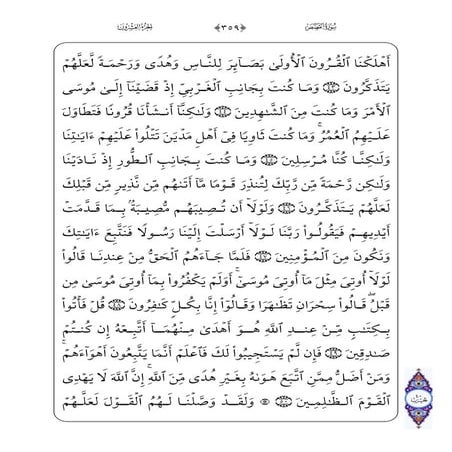 سُورَةُ القَصَصِ ﴿٣٥٩﴾ الجُزءُ العِشرُونَ
أَهْلَكْنَا ٱلْقُرُونَ ٱلْأُولَىٰ بَصَآئِرَ لِلنَّاسِ وَهُدًى وَرَحْمَةً لَّعَلَّهُمْ
يَتَذَكَّرُونَ وَمَا كُنتَ بِجَانِبِ ٱلْغَرْبِيِّ إِذْ قَضَيْنَآ إِلَىٰ مُوسَى
ٱلْأَمْرَ وَمَا كُنتَ مِنَ ٱلشَّـٰهِدِينَ وَلَـٰكِنَّآ أَنشَأْنَا قُرُونًا فَتَطَاوَلَ
عَلَيْهِمُ ٱلْعُمُرُ ۚ وَمَا كُنتَ ثَاوِيًا فِىٓ أَهْلِ مَدْيَنَ تَتْلُوا۟ عَلَيْهِمْ ءَايَـٰتِنَا
وَلَـٰكِنَّا كُنَّا مُرْسِلِينَ وَمَا كُنتَ بِجَانِبِ ٱلطُّورِ إِذْ نَادَيْنَا
وَلَـٰكِن رَّحْمَةً مِّن رَّبِّكَ لِتُنذِرَ قَوْمًا مَّآ أَتَىٰهُم مِّن نَّذِيرٍ مِّن قَبْلِكَ
لَعَلَّهُمْ يَتَذَكَّرُونَ وَلَوْلَآ أَن تُصِيبَهُم مُّصِيبَةٌۢ بِمَا قَدَّمَتْ
أَيْدِيهِمْ فَيَقُولُوا۟ رَبَّنَا لَوْلَآ أَرْسَلْتَ إِلَيْنَا رَسُولًا فَنَتَّبِعَ ءَايَـٰتِكَ
وَنَكُونَ مِنَ ٱلْمُؤْمِنِينَ فَلَمَّا جَآءَهُمُ ٱلْحَقُّ مِنْ عِندِنَا قَالُوا۟
لَوْلَآ أُوتِىَ مِثْلَ مَآ أُوتِىَ مُوسَىٰٓ ۚ أَوَلَمْ يَكْفُرُوا۟ بِمَآ أُوتِىَ مُوسَىٰ مِن
قَبْلُ ۖ قَالُوا۟ سِحْرَانِ تَظَـٰهَرَا وَقَالُوٓا۟ إِنَّا بِكُلٍّ كَـٰفِرُونَ قُلْ فَأْتُوا۟
بِكِتَـٰبٍ مِّنْ عِندِ ٱللَّهِ هُوَ أَهْدَىٰ مِنْهُمَآ أَتَّبِعْهُ إِن كُنتُمْ
صَـٰدِقِينَ فَإِن لَّمْ يَسْتَجِيبُوا۟ لَكَ فَٱعْلَمْ أَنَّمَا يَتَّبِعُونَ أَهْوَآءَهُمْ ۚ
وَمَنْ أَضَلُّ مِمَّنِ ٱتَّبَعَ هَوَىٰهُ بِغَيْرِ هُدًى مِّنَ ٱللَّهِ ۚ إِنَّ ٱللَّهَ لَا يَهْدِى
ٱلْقَوْمَ ٱلظَّـٰلِمِينَ ۞ وَلَقَدْ وَصَّلْنَا لَهُمُ ٱلْقَوْلَ لَعَلَّهُمْ